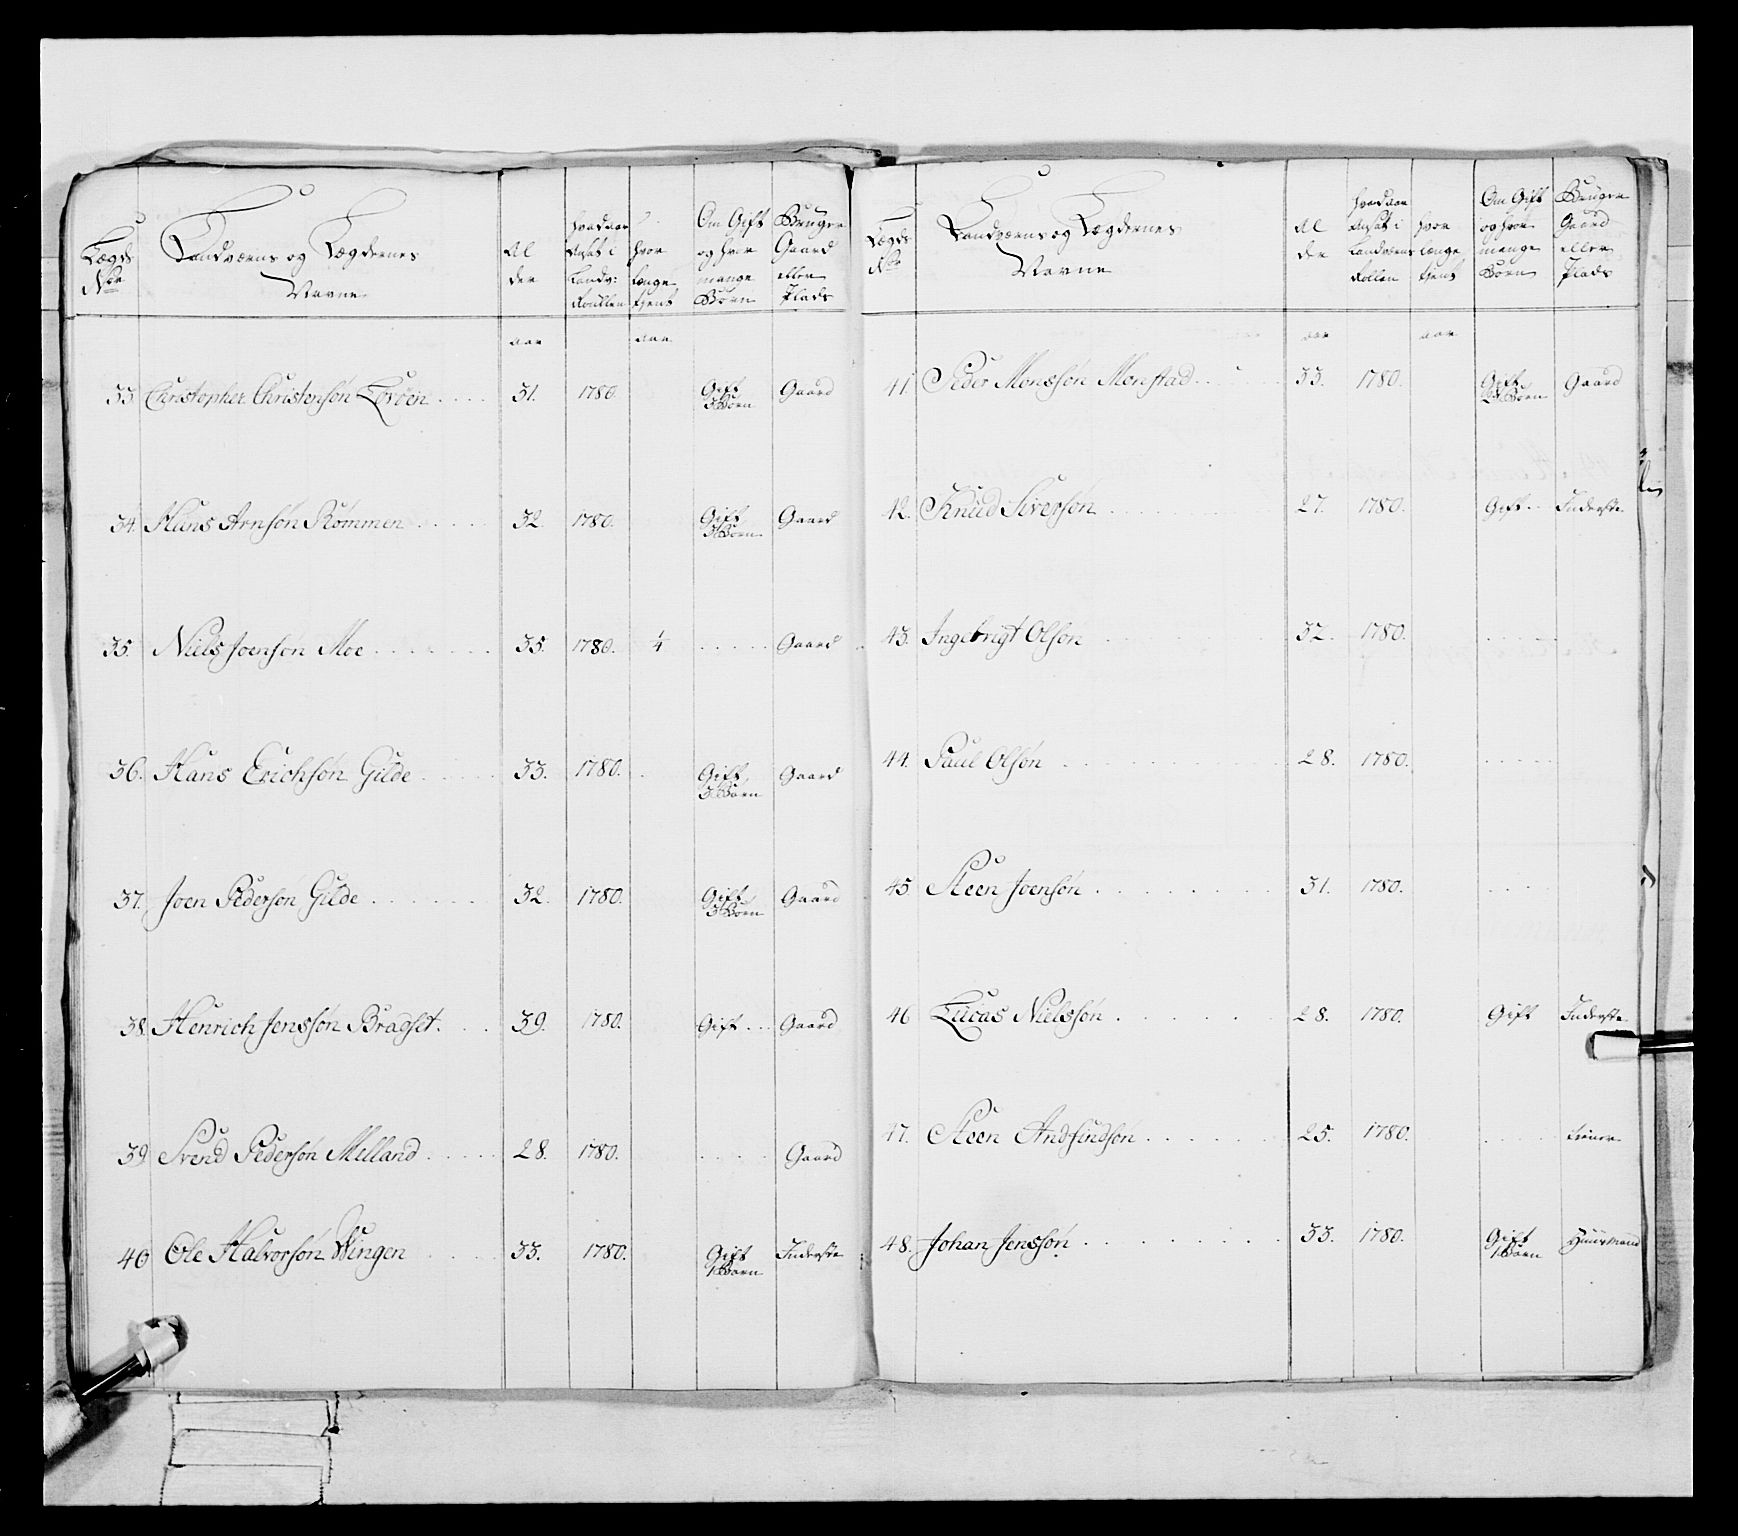 Lægds Nor | Landværns og Lægdernes Navne | Alder | hvad aar Ansat i Landv: Roullen | hvor længe tjent | Om Gift og hvor mange Børn | Bruger Gaard eller Plads
aar | aar
33. Christopher Christensøn | 31. | 1780. | Gift 3 Børn | Gaard
34. Hans Arnsøn Rømmen | 32 | 1780. | Gift 3 Børn | Gaard
35. Niels Joensøn Moe | 35. | 1780. | 1/4 | Gaard
36. Hans Erichsøn Gilde | 33. | 1780. | Gift 3 Børn | Gaard
37. Joen Pedersøn Gilde | 32. | 1780. | Gift 3 Børn | Gaard
38. Henrich Jenssøn Bragset. | 39. | 1780. | Gift | Gaard
39. Svend Pedersøn Melland | 28. | 1780. | Gaard
40 Ole Halvorsøn Wingen | 33. | 1780. | Gift 1 Børn | Inderste
Lægds Nor | Landværns og Lægdernes Navne | Alder | hvad aar Ansat i Landværns Rollen | hvor længe tjent | Om Gift og hvor mange Børn | Bruger Gaard eller Plads
aar | aar
41. Peder Monssøn Monstad | 33. | 1780. | Gift Børn | Gaard
42. Knud Siversøn | 27. | 1780. | Gift | Inderste
43. Ingebrigt Olsøn | 32. | 1780.
44. Paul Olsøn | 28. | 1780.
45 Steen Joensøn | 31. | 1780.
46 Lucas Nielssøn | 28. | 1780. | Gift | Inderste
47. Steen | 25. | 1780. | tiener
48. Johan Jenssøn | 33. | 1780. | Gift 1 Børn | Huusmand